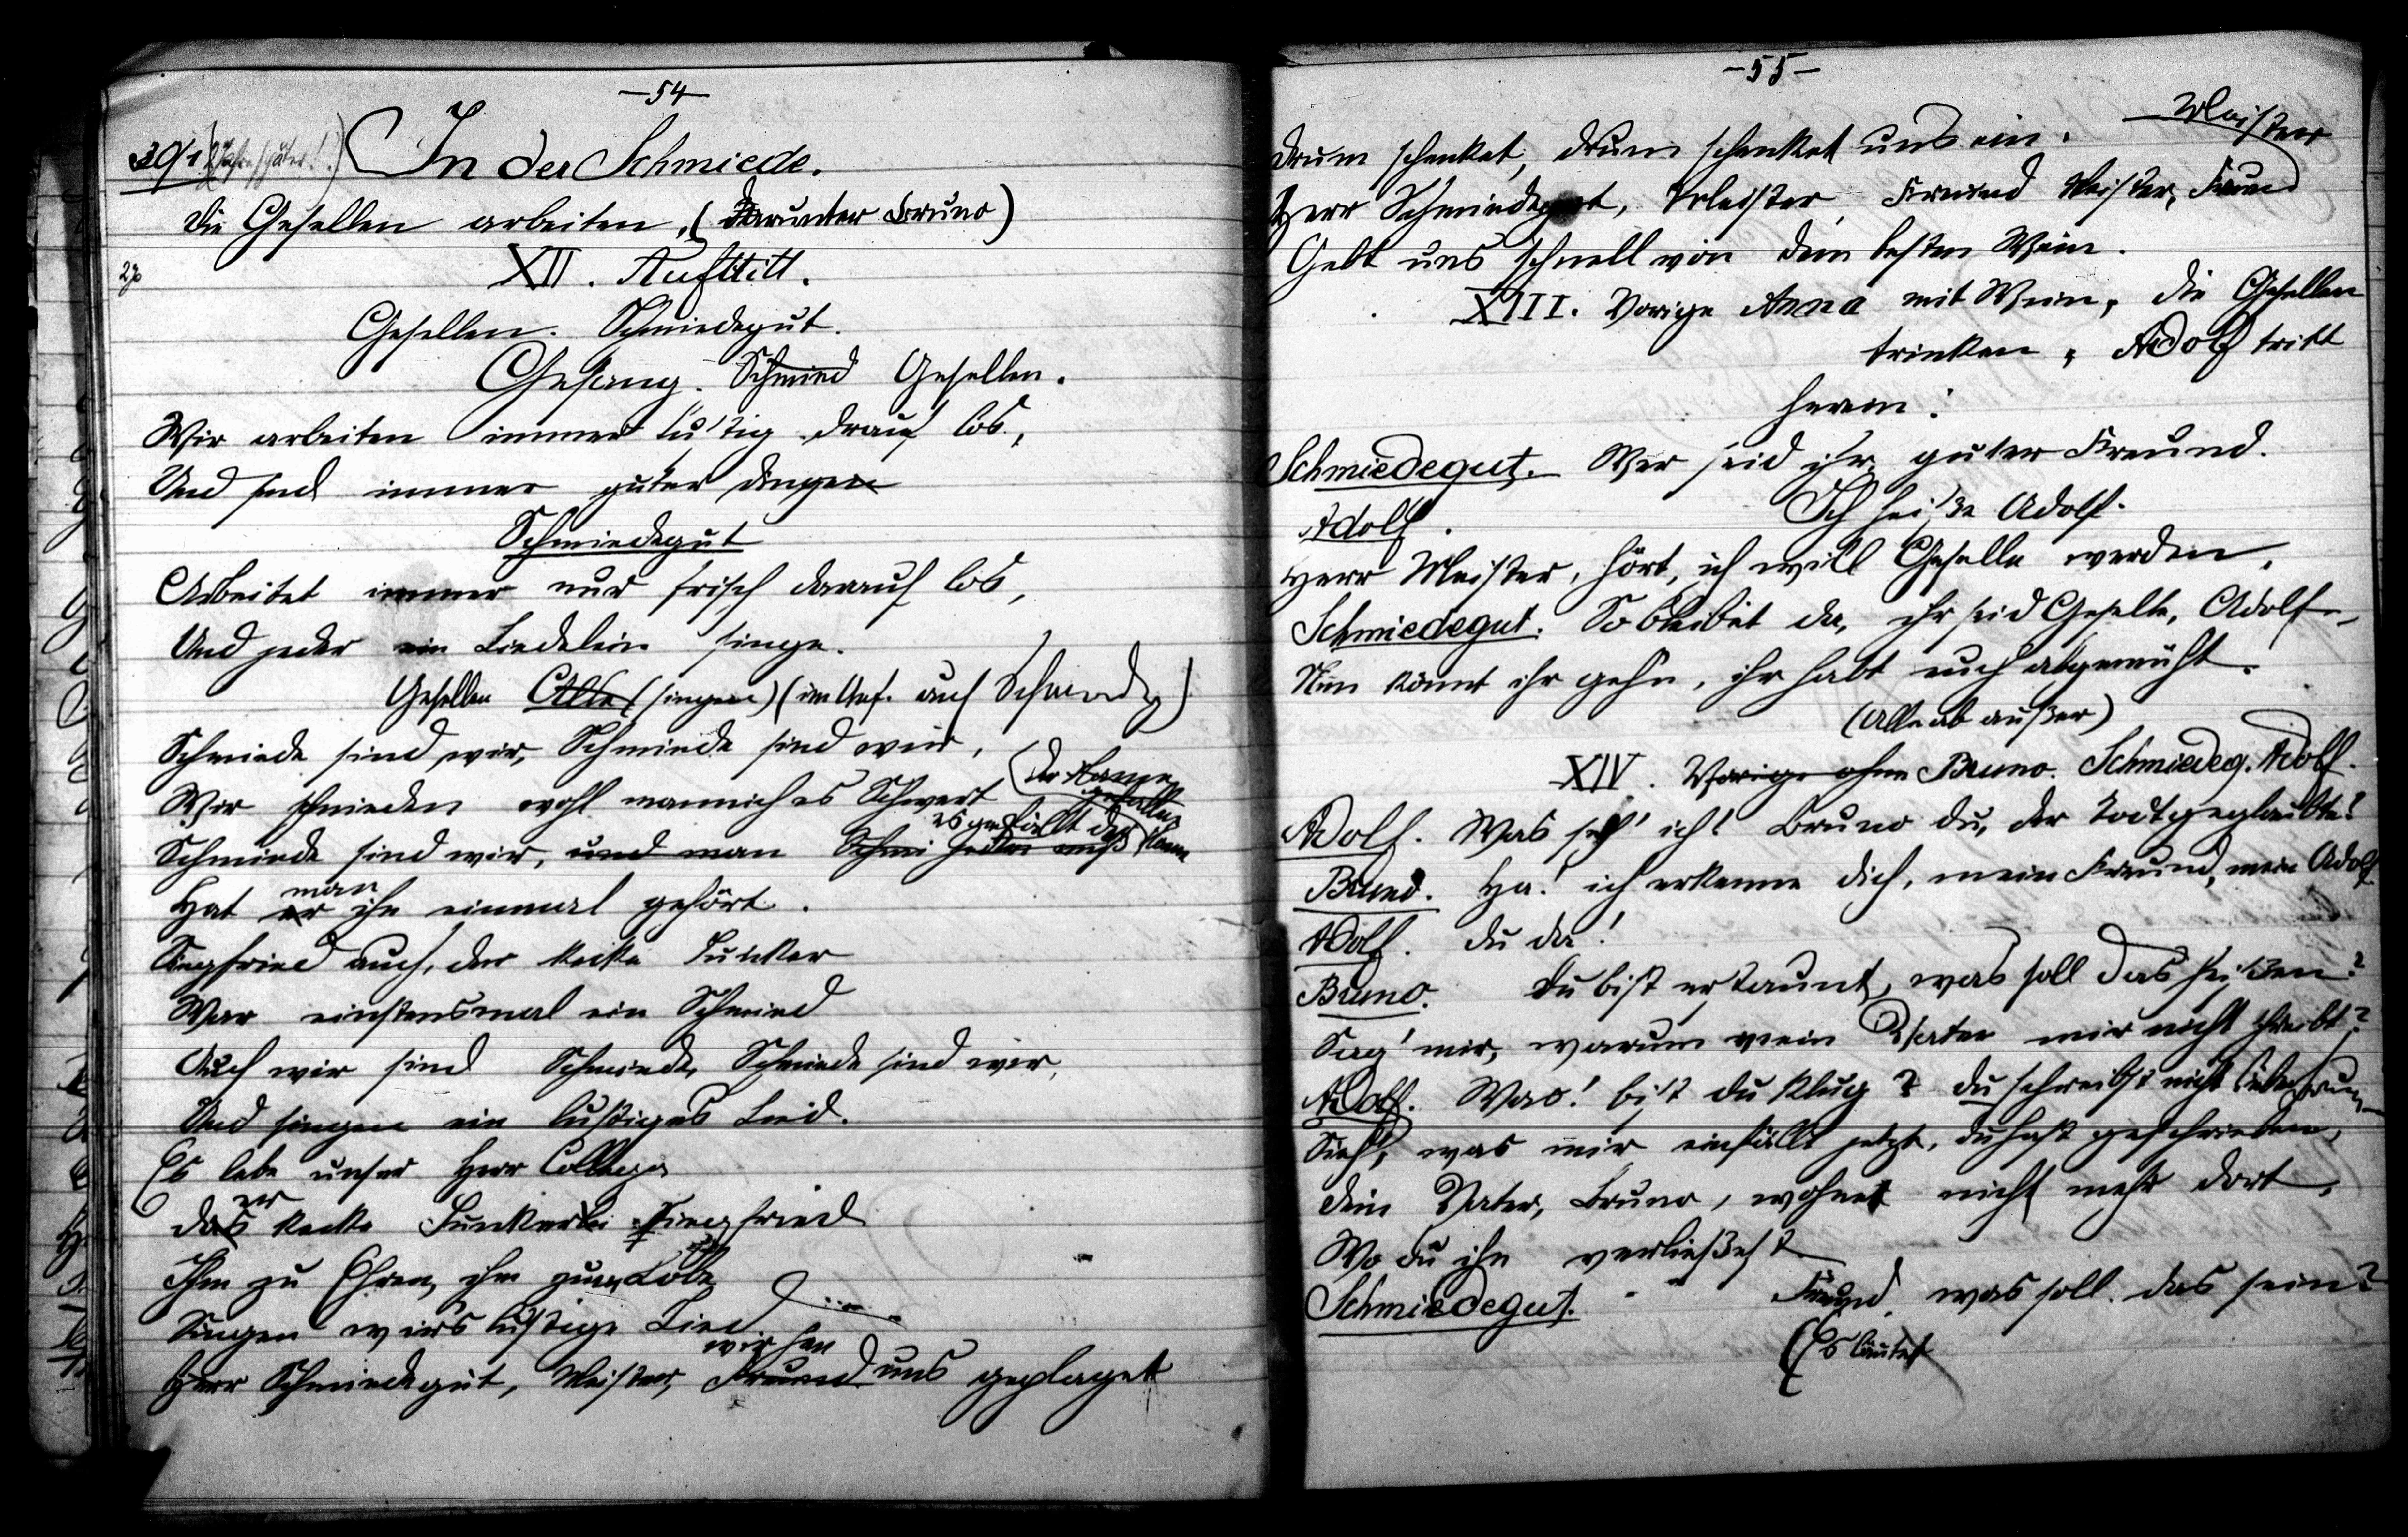 —54—
(Jahre später!) In der Schmiede.
Die Gesellen arbeiten, (darunter Bruno)
XII. Auftritt.
Gesellen. Schmiedegut.
Gesang. Schmied Gesellen.
Wir arbeiten immer lustig drauf los,
Und sind immer guter dingen
Schmiedegut
Arbeitet immer nur frisch darauf los,
Und jeder ein Liedelein singe.
Gesellen Alle (singen) (im auf Schmiede)
Schmiede sind wir, Schmiede sind wir,
Wir schmieden wohl mannich es Schwert (der Name gefällt
es gefällt der Name
Schmiede sind wir, und man Schmi muß
man
Hat er ihn einmal gehört.
Siegfried auch, der kecke Junker
War einstensmal ein Schmied
Auch wir sind Schmiede, Schmiede sind wir,
Und singen ein lustiges Lied.
Es lebe unser Herr Collega
er
das kecke Junkerlei Siegfried
Ihm zu Ehren, ihm zum Lobe
Singen wir's lustige Lied
wir han
Herr Schmiedegut, Meister, Freund uns geplaget
—55—
drum schenket, drum schenket uns ein. — Meister
Herr Schmiedegut, Meister, Freund Meister, Freund
Gebt uns schnell von dem besten Wein.
XIII. Vorige Anna mit Wein, die Gesellen
trinken, Adolf tritt
herein:
Schmiedegut. Wer seid ihr, guter Freund.
Adolf. Ich heiße Adolf.
Herr Meister, hört, ich will Geselle werden,
Schmiedegut. So bleibet da, ihr seid Geselle, Adolf,
Nun könnt ihr gehn, ihr habt euch abgemüht.
(Alle ab außer)
XIV. Vorige ohne Bruno. Schmiedeg. Adolf.
Adolf. Was seh' ich! Bruno du, der Todtgeglaubte?
Bruno. Ha! ich erkenne dich, mein Freund, mein Adolf
Adolf. du da!
Bruno. Du bist erstaunt, was soll das heißen?
Sag' mir, warum mein Vater mir nicht schreibt?
Adolf. Was! bist du klug? du schreibst nicht lieber
Sieh, was mir einfällt jetzt, du hast geschrieben,
Dein Vater, Bruno, wohnet nicht mehr dort,
Wo du ihn verließest
Schmiedegut. Freund, was soll das sein?
(Es läutet